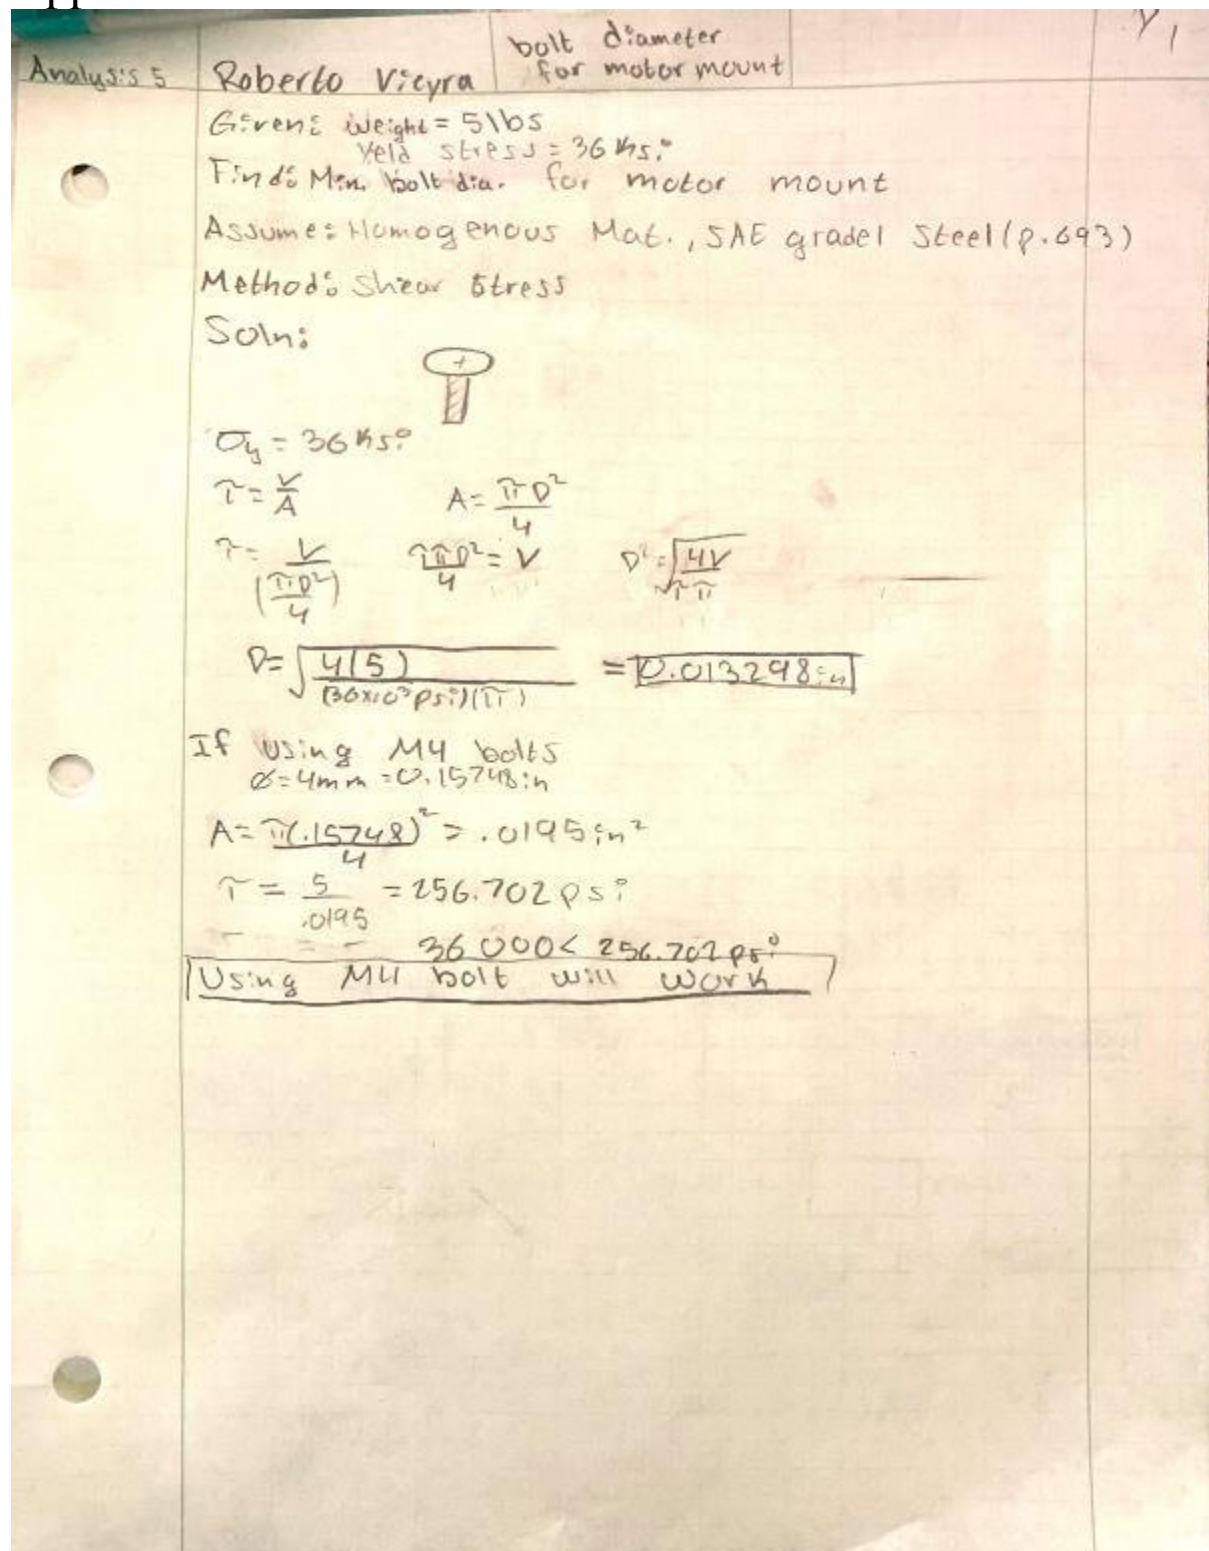 bolt diameter
for motor mount
1/1
Analysis 5
Roberto Vieyra
Given: weight = 5lbs
Yeld stress = 36 Ksi
Find: Min. bolt dia. for motor mount
Assume: Homogenous Mat., SAE grade1 Steel (p.693)
Method: Shear Stress
Soln:
σy = 36 Ksi
τ = V/A A = πD²/4
τ = V/(πD²/4) τπD²/4 = V D² = √(4V/τπ)
D = √(4(5)/(36x10³psi)(π)) = 0.013298in
If using M4 bolts
ø = 4mm = 0.15748in
A = π(.15748)²/4 = .0195in²
τ = 5/.0195 = 256.702 psi
36 000 < 256.702 psi
Using M4 bolt will work